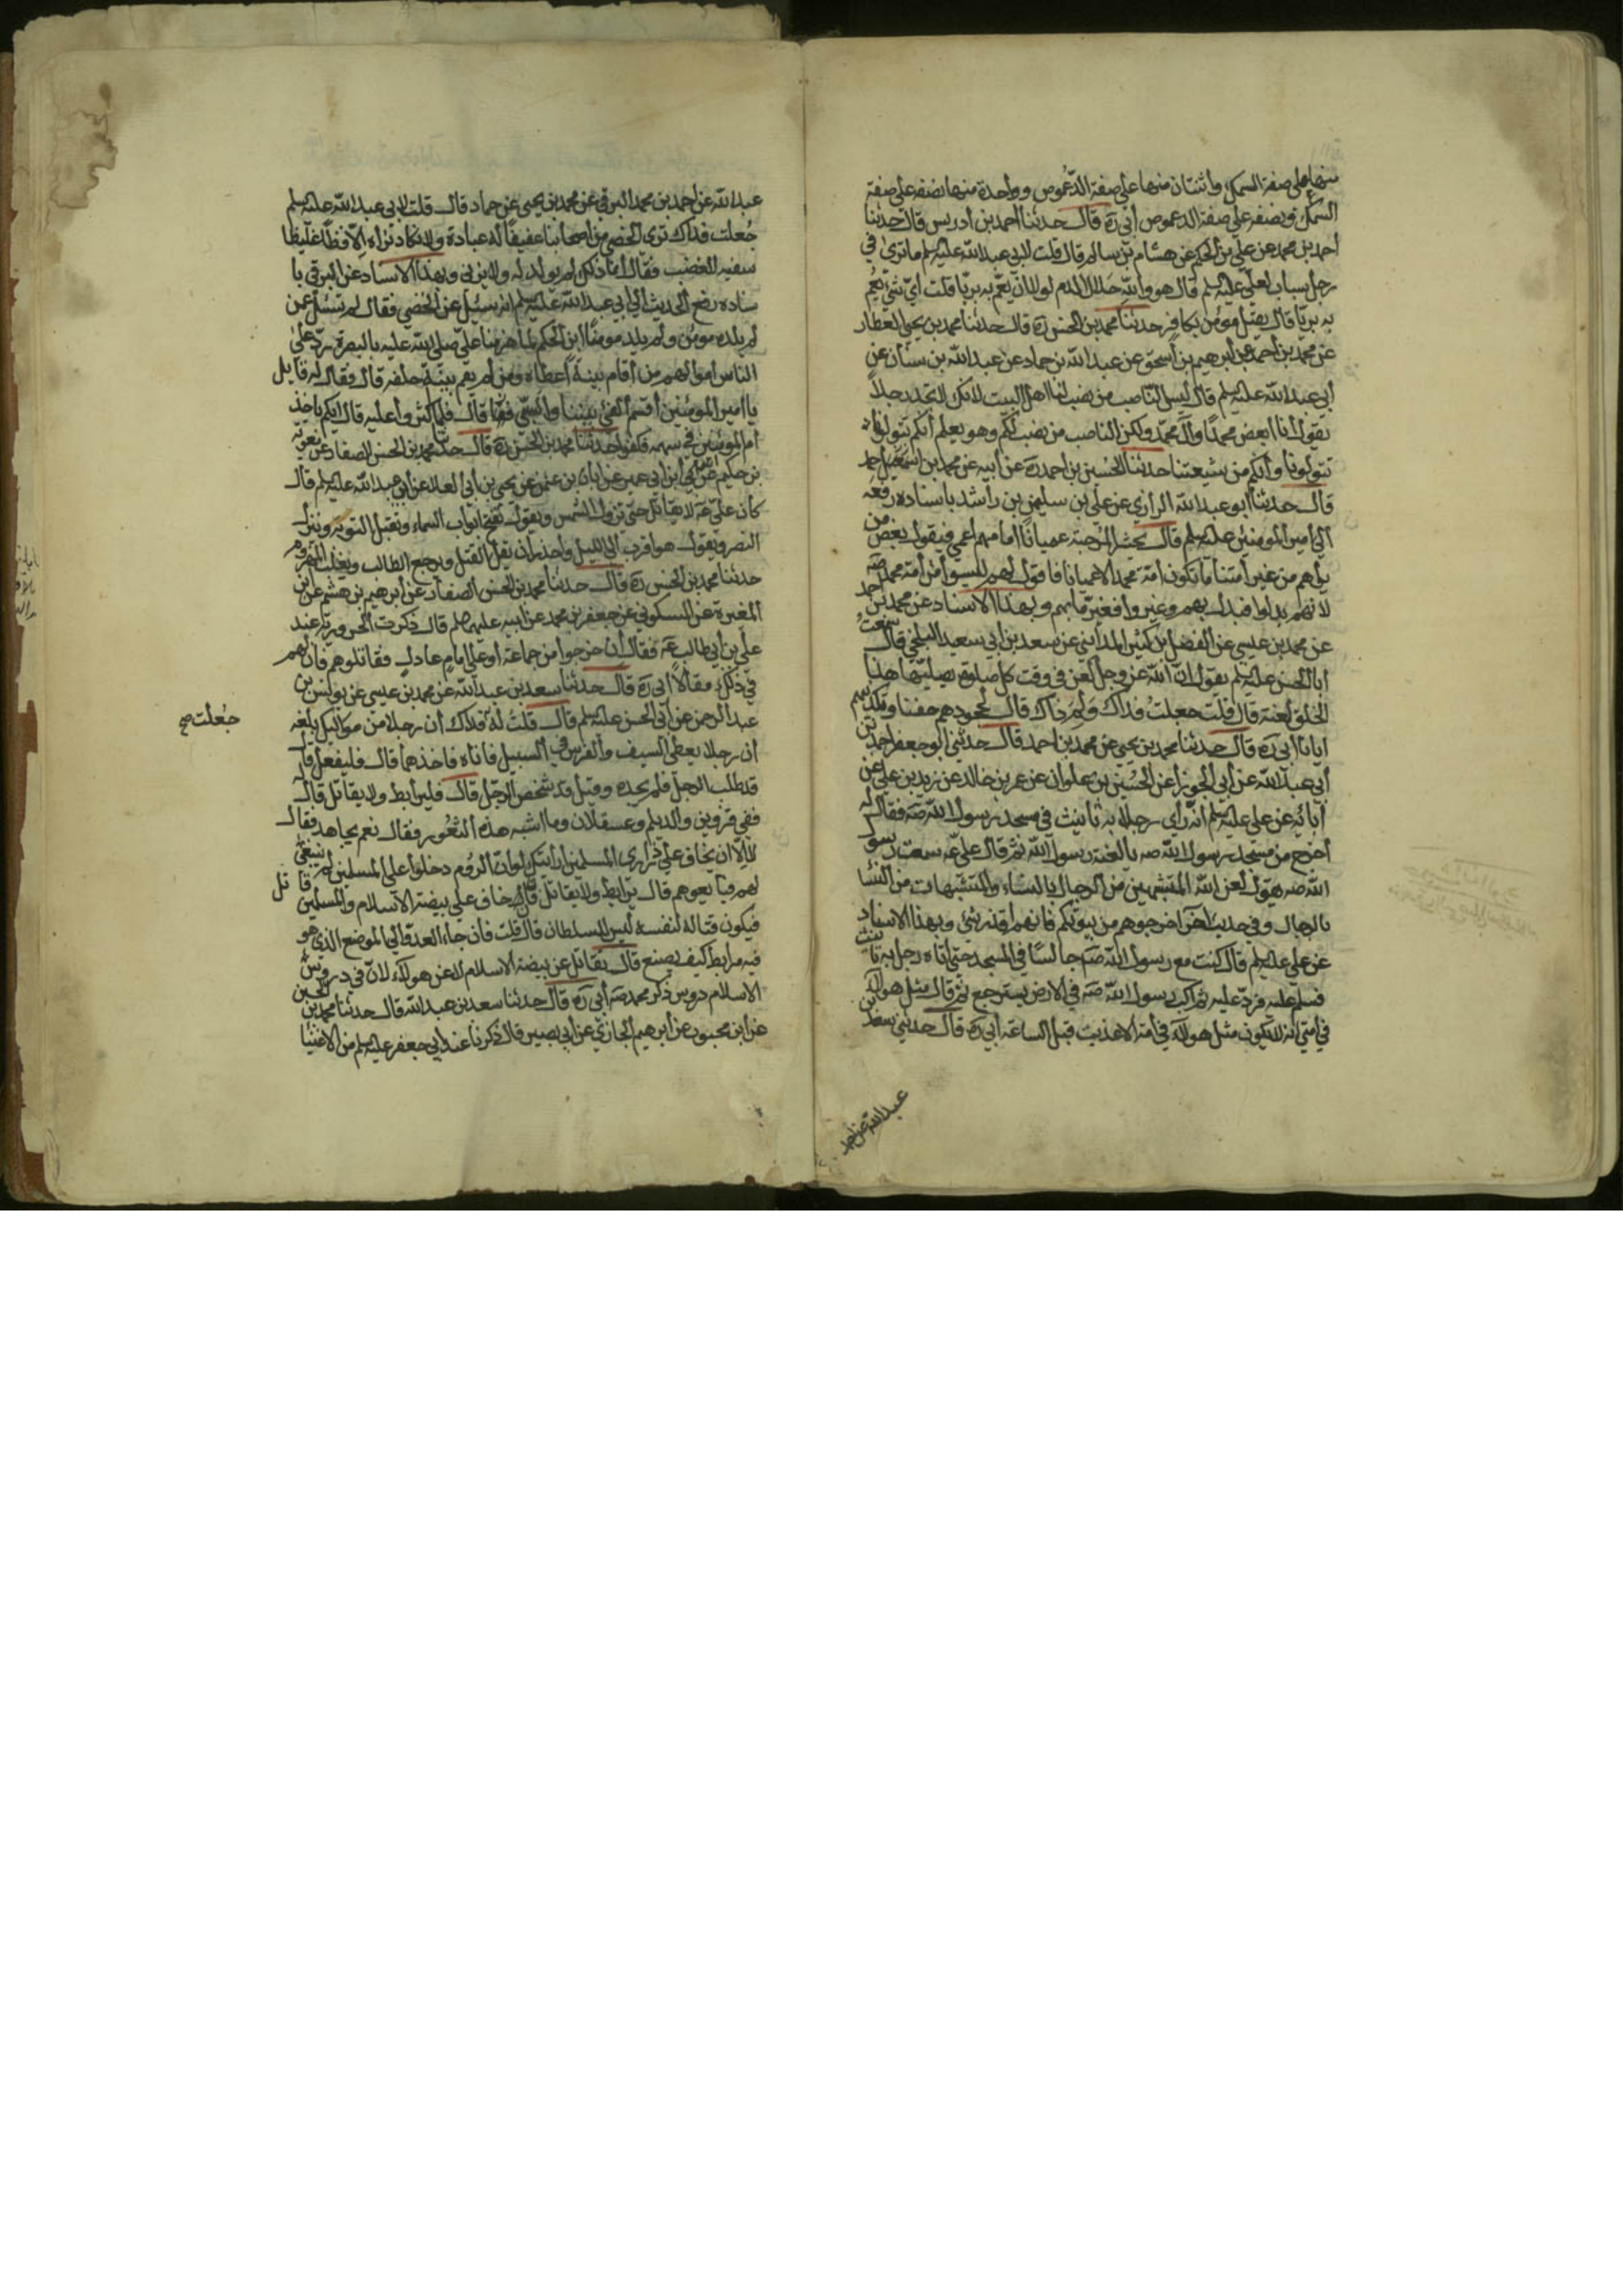 منها على صفة السمك واثنتان منها على صفة الدعموص وواحدة منها نصفه على صفة
السمك ونصفه على صفة الدعموص أبي ره قال حدثنا احمد بن ادريس قال حدثنا
احمد بن محمد عن علي بن الحكم عن هشام بن سالم قال قلت لابي عبد الله عليه السلم ما ترى في
رجل سباب لعلي عليه السلم قال هو والله حلال الدم لولا ان يعم به بريّا قلت أيّ شيء يعم
به بريّا قال يقتل مؤمن بكافر حدثنا محمد بن الحسن ره قال حدثنا محمد بن يحيى العطار
عن محمد بن أحمد عن ابرهيم بن اسحق عن عبد الله بن حماد عن عبد الله بن سنان عن
أبي عبد الله عليه السلم قال ليس الناصب من نصب لنا اهل البيت لانك لا تجد رجلاً
يقول أنا ابغض محمدًا وآل محمد ولكن الناصب من نصب لكم وهو يعلم أنكم
تتولونا وأنكم من شيعتنا حدثنا الحسين بن احمد ره عن أبيه عن محمد بن احمد
قال حدثنا أبو عبد الله الرازي عن علي بن سليمن بن راشد باسناده رفعه
الى أمير المومنين عليه السلم قال يحشر المرجئة عميانًا امامهم اعمى فيقول بعض من
يراهم من غير أمتنا ما تكون أمّة محمد الا عميانا فاقول لهم ليسوا من أمة محمد صه
لانهم بدلوا فبدل بهم وغيروا فغير ما بهم وبهذا الاسناد عن محمد بن احمد
عن محمد بن عيسى عن الفضل بن كثير المدايني عن سعد بن ابي سعيد البلخي قال سمعت
أبا الحسن عليه السلم يقول انّ الله عز وجل لعن في وقت كل صلوة يصليها هذا
الخلق لعنة قال قلت جعلت فداك ولم ذاك قال لجحودهم حقنا وتكذيبهم
ايانا أبي ره قال حدثنا محمد بن يحيى عن محمد بن احمد قال حدثني ابو جعفر احمد بن
أبي عبد الله عن أبي الجوزا عن الحسين بن علوان عن عمر بن خالد عن زيد بن علي عن
آبائه عن علي عليه السلم أنه رأى رجلا به تأنيث في مسجد رسول الله صه فقال له
أخرج من مسجد رسول الله صه يا لعنة رسول الله ثم قال علي عه سمعت رسول
الله صه يقول لعن الله المتشبهين من الرجال بالنساء والمتشبهات من النساء
بالرجال وفي حديث آخر اخرجوهم من بيوتكم فانهم اقذر شيء وبهذا الاسناد
عن علي عليه السلم قال كنت مع رسول الله صه جالسًا في المسجد حتى أتاه رجل به تأنيث
فسلم عليه فردّ عليه ثم اكب رسول الله صه في الارض يسترجع ثم قال مثل هولاء
في امتي انه لم يكون مثل هولاء في امة الا عذبت قبل الساعة أبي ره قال حدثني سعد بن
عبد الله عن احمد
عبد الله عن احمد بن محمد البرقي عن محمد بن يحيى عن حماد قال قلت لابي عبد الله عليه السلم
جعلت فداك ترى الخصي من اصحابنا عفيفًا له عبادة ولا نكاد نراه الّا فظّا غليظا
سفيه الغضب فقال انما ذلك لم يولد له ولا يزني وبهذا الاسناد عن البرقي با
سناده رفع الحديث الى ابي عبد الله عليه السلم انه سئل عن الخصي فقال لم تسئل عن
لم يلده مومن ولم يلد مومنًا ابن الحكم لما هزمنا علي صلى الله عليه بالبصرة ردّ على
الناس اموالهم من أقام بينة أعطاه ومن لم يقم بينة حلفه قال فقال له قايل
يا امير المومنين أقسم الفيء بيننا والسبي قال فلما أكثروا عليه قال ايكم ياخذ
أم المومنين في سهمه فكفوا حدثنا محمد بن الحسن ره قال حدثنا محمد بن الحسن الصفار عن معوية
بن حكيم عن ابن أبي عمير عن أبان بن عثمن عن يحيى بن أبي العلا عن أبي عبد الله عليه السلم قال
كان علي عه لا يقاتل حتى تزول الشمس ويقول تفتح ابواب السماء وتقبل التوبة وينزل
النصر ويقول هو اقرب الى الليل واجدر أن يقل القتل ويرجع الطالب ويفلت المهزوم
حدثنا محمد بن الحسن ره قال حدثنا محمد بن الحسن الصفار عن أبرهيم بن هشم عن ابن
المغيرة عن السكوني عن جعفر بن محمد عن ابيه عليهما السلم قال ذكرت الحرورية عند
علي بن أبي طالب عه فقال أن خرجوا من جماعة أو على امام عادل فقاتلوهم فان لهم
في ذلك مقالاً أبي ره قال حدثنا سعد بن عبد الله عن محمد بن عيسى عن يونس بن
عبد الرحمن عن أبي الحسن عليه السلم قال قلت له فداك أن رجلا من مواليك بلغه
جعلت صح
أن رجلا يعطي السيف والفرس في السبيل فاتاه فاخذهما قال فليفعل قال
قد طلب الرجل فلم يجده وقيل قد شخص الرجل قال فليرابط ولا يقاتل قال
ففي قزوين والديلم وعسقلان وما اشبه هذه الثغور فقال نعم يجاهد فقال
لا الّا ان يخاف على ذراري المسلمين أرايتك لو انّ الروم دخلوا على المسلمين لم ينبغي
لهم يمنعوهم قال يرابط ولا يقاتل فان خاف على بيضة الاسلام والمسلمين قاتل
فيكون قتاله لنفسه ليس للسلطان قال قلت فان جاء العدو الى الموضع الذي هو
فيه مرابط كيف يصنع قال يقاتل عن بيضة الاسلام لا عن هولاء لانّ في دروس
الاسلام دروس ذكر محمد صه أبي ره قال حدثنا سعد بن عبد الله قال حدثنا محمد بن الحسين
عن ابن محبوب عن ابرهيم الجازي عن أبي بصير قال ذكرنا عند ابي جعفر عليه السلم من الاغنيا